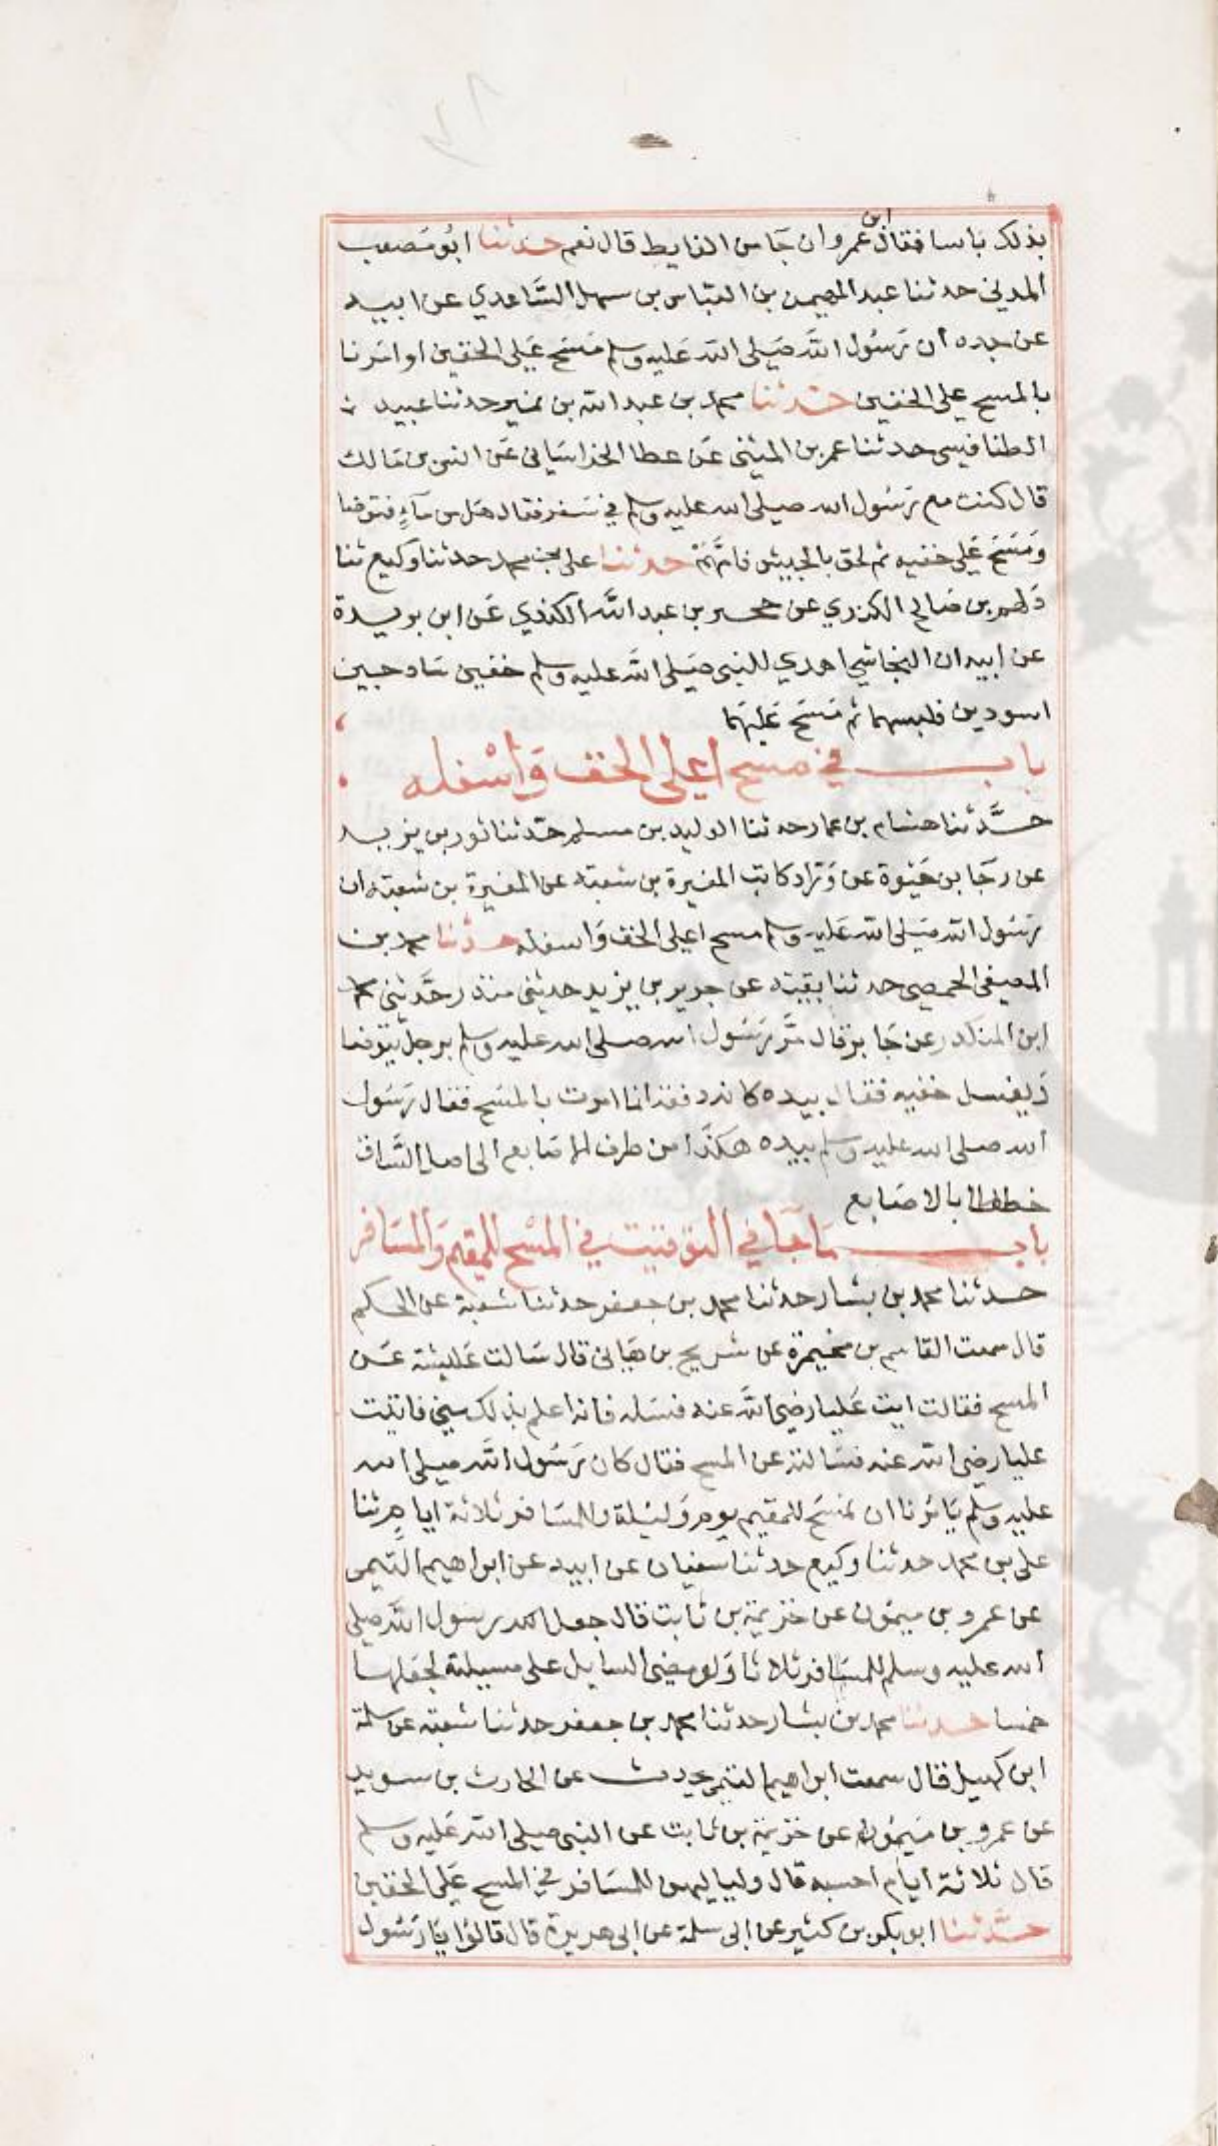 بذلك باسا فقال ابن عمر وان جا من الغايط قال نعم حدثنا ابو مصعب
المدني حدثنا عبد المهيمن بن العباس بن سهل الساعدي عن ابيه
عن جده ان رسول الله صلى الله عليه وسلم مسح على الخفين او امرنا
بالمسح على الخفين حدثنا محمد بن عبد الله بن نمير حدثنا عبيد
الطنافيسي حدثنا عمر بن المثنى عن عطا الخراساني عن انس بن مالك
قال كنت مع رسول الله صلى الله عليه وسلم في سفر فقال هل من مآء فتوضا
ومسح على خفيه ثم لحق بالجيش فامهم حدثنا علي بن محمد حدثنا وكيع ثنا
دلهم بن صالح الكندري عن حجير بن عبد الله الكندي عن ابن بريدة
عن ابيه ان النجاشي اهدي للنبي صلى الله عليه وسلم خفين سادجين
اسودين فلبسهما ثم مسح عليهما
باب في مسح اعلى الخف واسفله
حدثنا هشام بن عمار حدثنا الوليد بن مسلم حدثنا ثور بن يزيد
عن رجا بن حيوة عن وراد كاتب المغيرة بن شعبة عن المغيرة بن شعبة ان
رسول الله صلى الله عليه وسلم مسح اعلى الخف واسفله حدثنا محمد بن
المصفى الحمصي حدثنا بقية عن جرير بن يزيد حدثني منذر حدثني محمد
ابن المنكدر عن جابر قال مر رسول الله صلى الله عليه وسلم برجل يتوضا
ويغسل خفيه فقال بيده كانه دفعه انما امرت بالمسح فقال رسول
الله صلى الله عليه وسلم بيده هكذا من طرف الاصابع الى اصل الساق
خططا بالاصابع
باب ما جا في التوقيت في المسح للمقيم والمسافر
حدثنا محمد بن بشار حدثنا محمد بن جعفر حدثنا شعبة عن الحكم
قال سمعت القاسم بن مخيمرة عن شريح بن هاني قال سالت عايشة عن
المسح فقالت ايت عليا رضي الله عنه فسله فانه اعلم بذلك مني فاتيت
عليا رضي الله عنه فسالته عن المسح فقال كان رسول الله صلى الله
عليه وسلم يامرنا ان نمسح للمقيم يوم وليلة وللمسافر ثلاثة ايام ثنا
علي بن محمد حدثنا وكيع حدثنا سفيان عن ابيه عن ابراهيم التيمي
عن عمرو بن ميمون عن خزيمة بن ثابت قال جعل رسول الله صلى
الله عليه وسلم للمسافر ثلاثا ولو مضى السايل على مسيلته لجعلها
خمسا حدثنا محمد بن بشار حدثنا محمد بن جعفر حدثنا شعبة عن سلمة
ابن كهيل قال سمعت ابراهيم التيمي يحدث عن الحارث بن سويد
عن عمرو بن ميمون عن خزيمة بن ثابت عن النبي صلى الله عليه وسلم
قال ثلاثة ايام احسبه قال ولياليهن للمسافر في المسح على الخفين
حدثنا ابو بكر بن كثير عن ابي سلمة عن ابي هريرة قال قالوا يا رسول